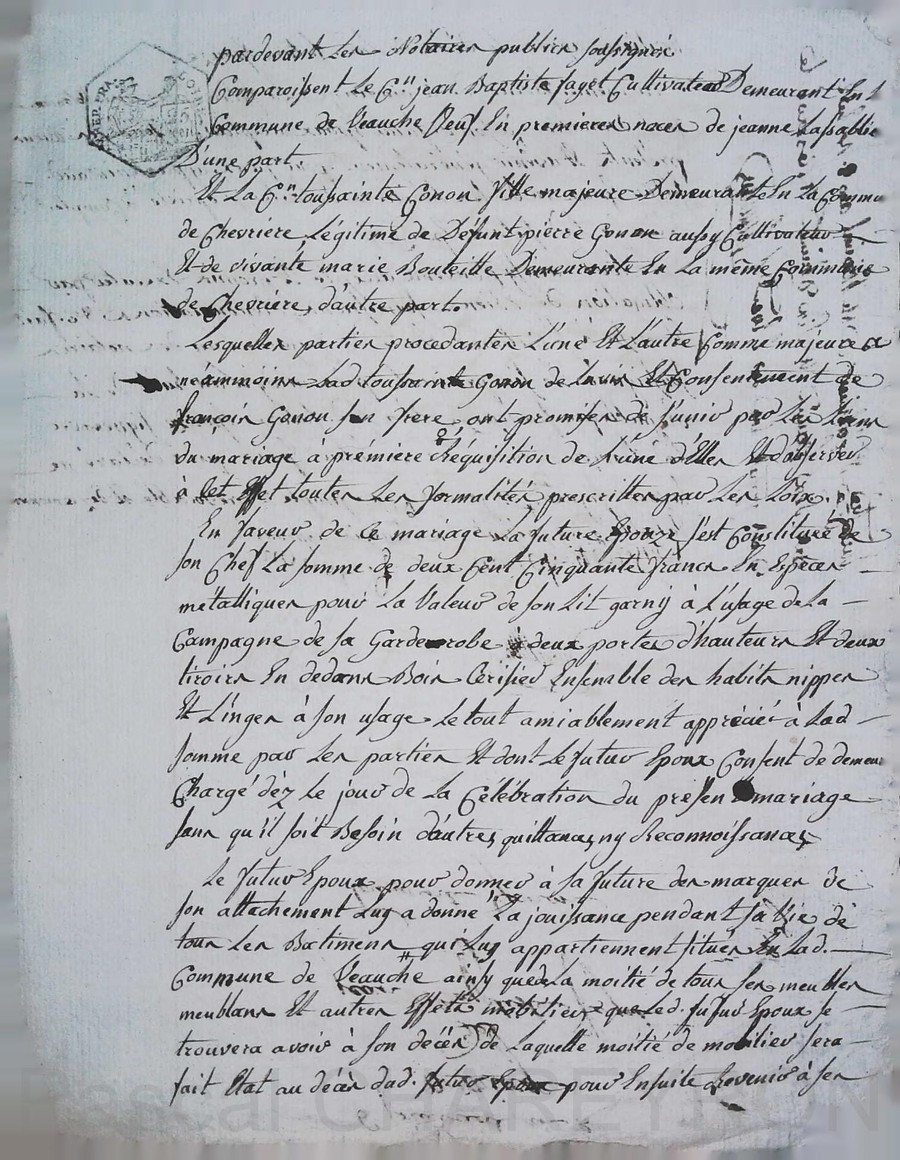 pardevant Les Notaires publics soussignés
Comparoissent Le Cen jean Baptiste faget Cultivateur Demeurant En L
Commune de Veauche Veuf En premieres noces de jeanne Lassablie
D'une part.
Et La Cne toussainte Gonon fille majeure Demeurante En La Commu
de Chevriere Légitime de Défunt pierre Gonon aussy Cultivateur
Et de vivante marie Bouteille Demeurante En La même Commune
de Chevriere, d'autre part.
Lesquelles parties procedantes L'une Et L'autre Comme majeures &
néammoins Lad. toussainte Gonon de L'avis Et Consentement de
françois Gonon son frere, ont promises de s'unir par Les Liens
du mariage à prémière Réquisition de L'une d'Elles Et d'observer
à Cet Effet toutes Les formalités prescrittes par Les Loix.
En faveur de Ce mariage La future Epouse s'est Constituée de
son Chef La somme de deux Cent Cinquante francs En Especes
métalliques pour La Valeur de son Lit garny à L'usage de La
Campagne de sa Garderobe à deux portes d'hauteurs Et deux
tiroirs En dedans Bois Cerisier Ensemble des habits nippes
Et Linges à son usage Le tout amiablement apprécié à Lad
somme par Les parties Et dont Le futur Epoux Consent de demeu
Chargé dèz Le jour de La Célébration du présen mariage
sans qu'il soit Besoin d'autres quittances, ny Reconnoissances
Le futur Epoux pour donner à sa future des marques de
son attachement Luy a donné La jouissance pendant sa Vie de
tous Les Batimens qui Luy appartiennent situés En Lad.
Commune de Veauche ainsy que La moitié de tous ses meubles
meublans Et autres Effets mobiliers que Led. futur Epoux se
trouvera avoir à son décès, de Laquelle moitié de mobilier sera
fait Etat au décès dud. futur Epoux pour Ensuite Revenir à ses